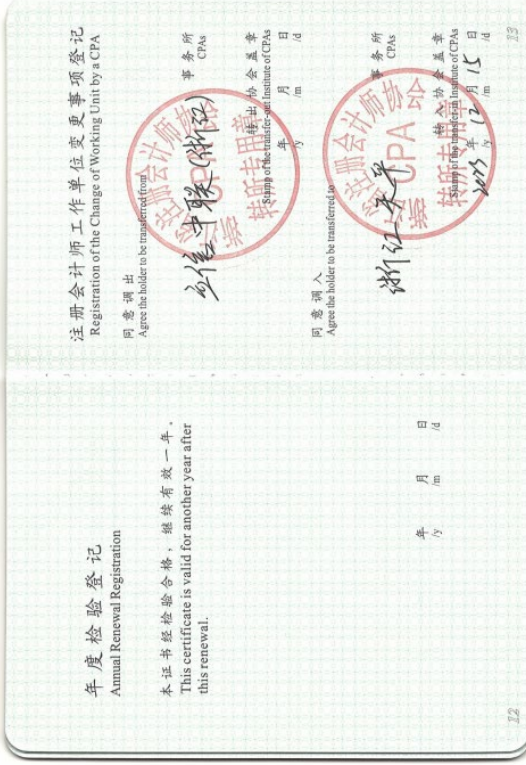 年度检验登记
Annual Renewal Registration
本证书经检验合格，继续有效一年。
This certificate is valid for another year after
this renewal.
年 月 日
/y /m /d
22
注册会计师工作单位变更事项登记
Registration of the Change of Working Unit by a CPA
同意调出
Agree the holder to be transferred from
立信中联(浙江)
事务所
CPAs
转出协会盖章
Stamp of the transfer-out Institute of CPAs
年 月 日
/y /m /d
注册会计师协会
CPA
转所专用章
同意调入
Agree the holder to be transferred to
浙江天平
事务所
CPAs
转入协会盖章
Stamp of the transfer-in Institute of CPAs
2023年12月15日
/y /m /d
注册会计师协会
CPA
转所专用章
23